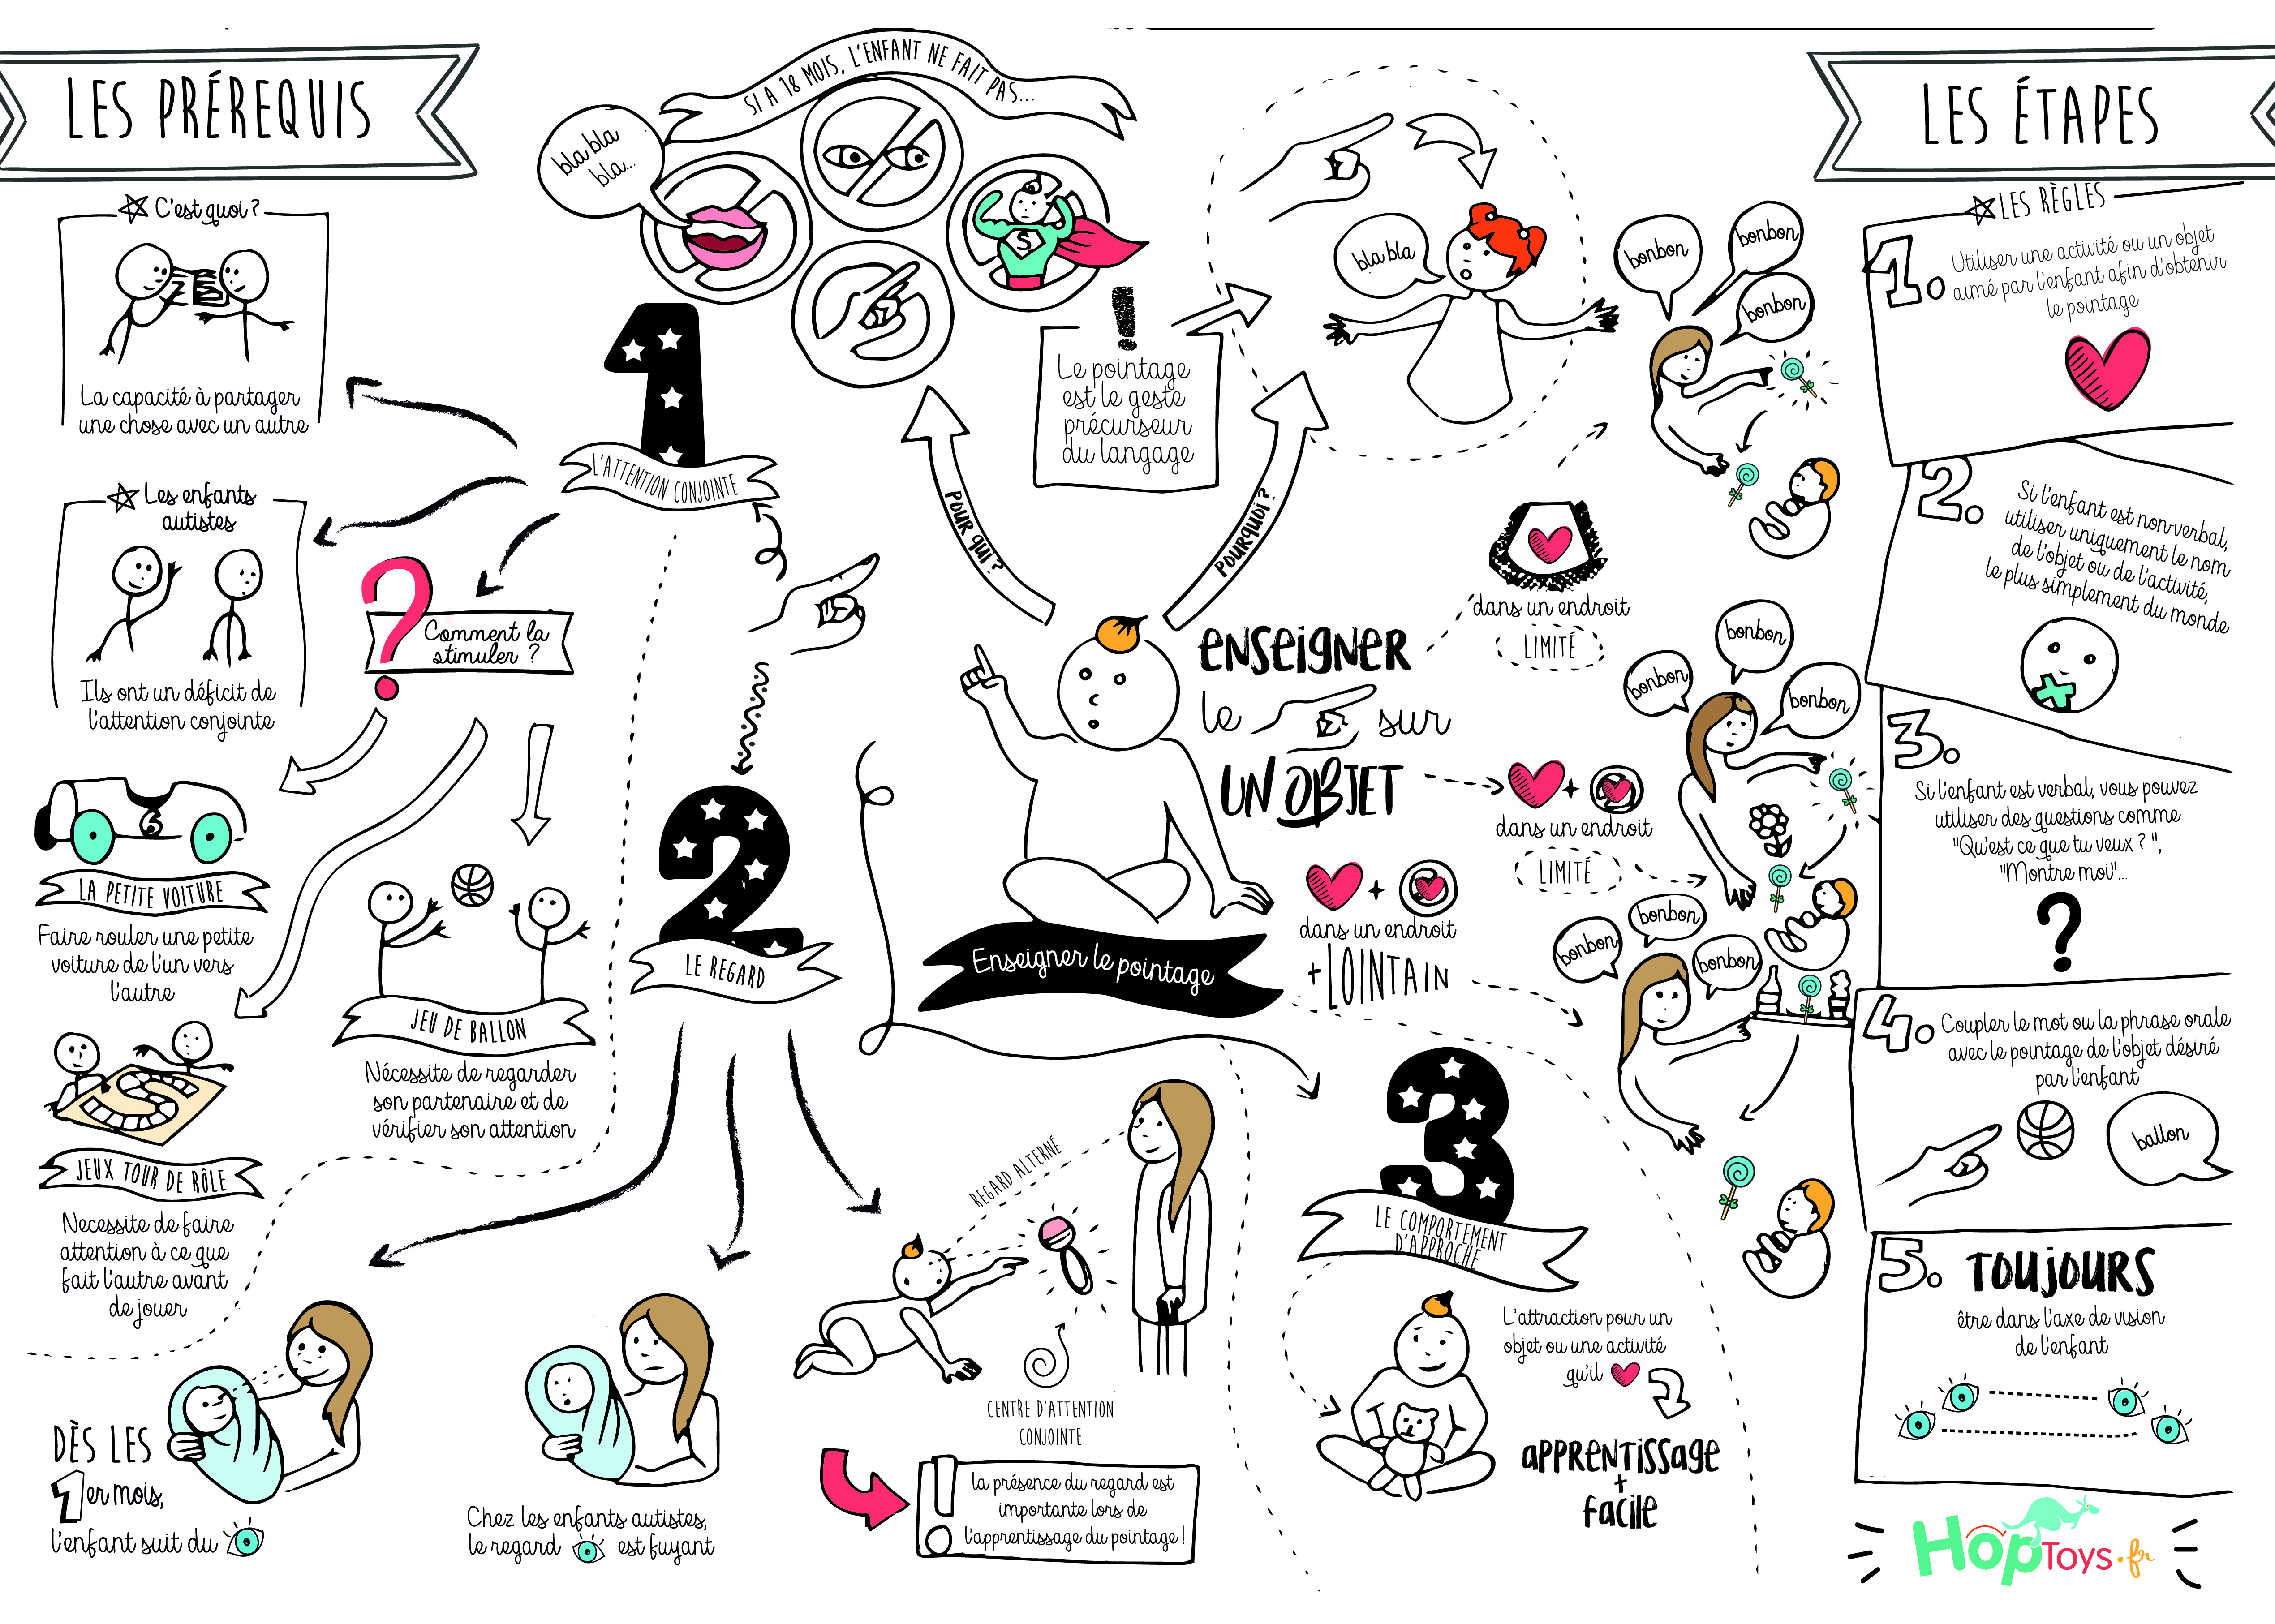 LES PRÉREQUIS
C'est quoi ?
La capacité à partager
une chose avec un autre
Les enfants
autistes
Ils ont un déficit de
l'attention conjointe
1
L'ATTENTION CONJOINTE
?
Comment la
stimuler ?
6
LA PETITE VOITURE
Faire rouler une petite
voiture de l'un vers
l'autre
JEUX TOUR DE RÔLE
Necessite de faire
attention à ce que
fait l'autre avant
de jouer
JEU DE BALLON
Nécessite de regarder
son partenaire et de
vérifier son attention
2
LE REGARD
DÈS LES
1er mois,
l'enfant suit du
Chez les enfants autistes,
le regard est fuyant
REGARD ALTERNÉ
CENTRE D'ATTENTION
CONJOINTE
!
la présence du regard est
importante lors de
l'apprentissage du pointage !
SI A 18 MOIS, L'ENFANT NE FAIT PAS...
bla bla
bla...
S
!
Le pointage
est le geste
précurseur
du langage
POUR QUI ?
POURQUOI ?
bla bla
Enseigner le pointage
3
LE COMPORTEMENT
D'APPROCHE
L'attraction pour un
objet ou une activité
qu'il
APPRENTISSAGE
+
FACILE
ENSEIGNER
le sur
UN OBJET
dans un endroit
LIMITÉ
+
dans un endroit
LIMITÉ
+
dans un endroit
+ LOINTAIN
bonbon
bonbon
bonbon
bonbon
bonbon
bonbon
bonbon
bonbon
bonbon
LES ÉTAPES
LES RÈGLES
1.
Utiliser une activité ou un objet
aimé par l'enfant afin d'obtenir
le pointage
2.
Si l'enfant est non-verbal,
utiliser uniquement le nom
de l'objet ou de l'activité,
le plus simplement du monde
3.
Si l'enfant est verbal, vous pouvez
utiliser des questions comme
"Qu'est ce que tu veux ? ",
"Montre moi"...
?
4.
Coupler le mot ou la phrase orale
avec le pointage de l'objet désiré
par l'enfant
ballon
5.
TOUJOURS
être dans l'axe de vision
de l'enfant
HopToys.fr